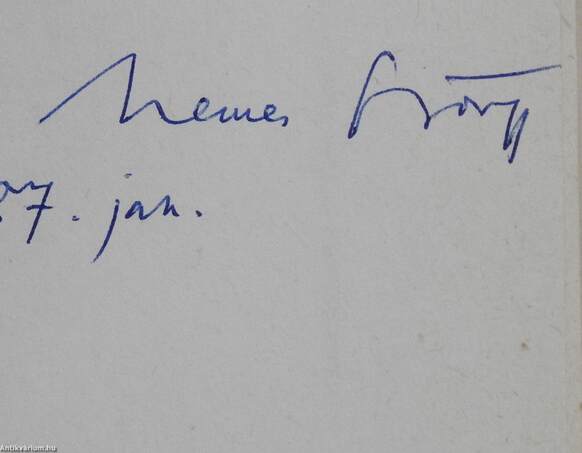 Nemes György
7. jan.
Antikvarium.hu